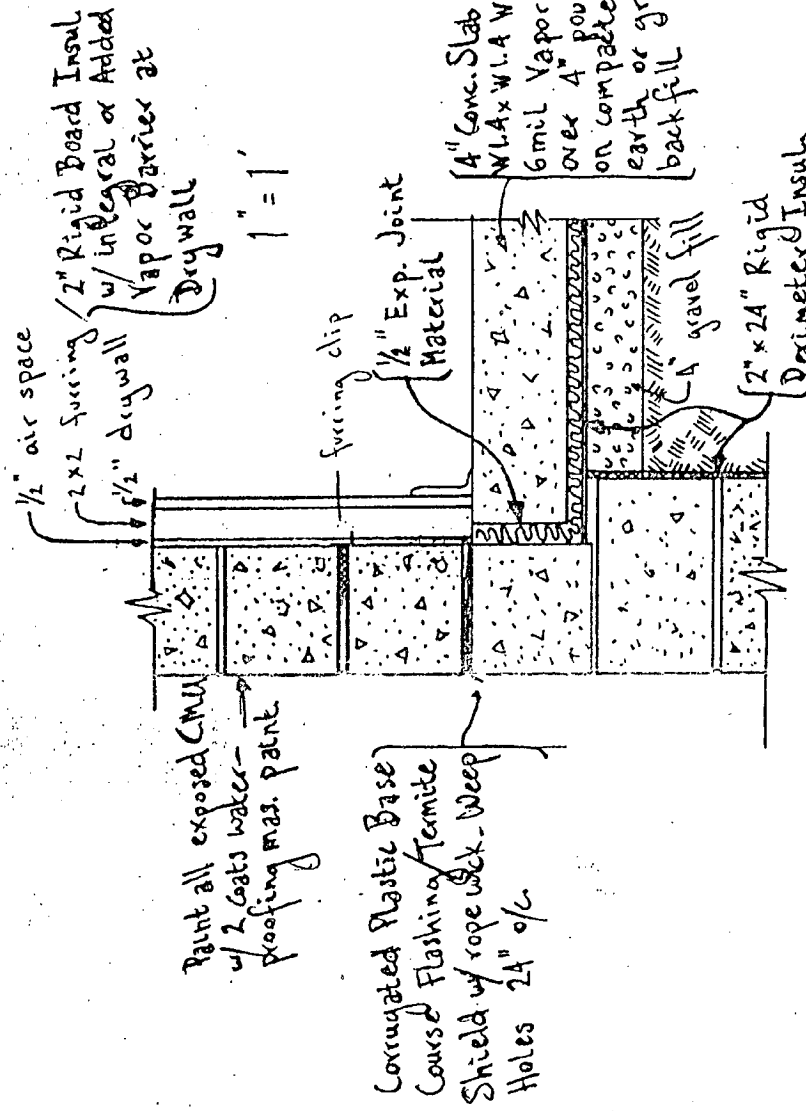 1/2" air space
2x2 furring
1/2" drywall
2" Rigid Board Insul
w/ integral or Added
Vapor Barrier at
Drywall
1" = 1'
furring clip
1/2" Exp. Joint
Material
4" Conc. Slab
W1.4 x W1.4 W
6mil Vapor
over 4" pou
on compacte
earth or gr
backfill
4" gravel fill
2" x 24" Rigid
Perimeter Insul
Paint all exposed CMU
w/ 2 Coats water-
proofing mas. paint.
Corrugated Plastic Base
Course Flashing/Termite
Shield w/ rope wick-Weep
Holes 24" o/c